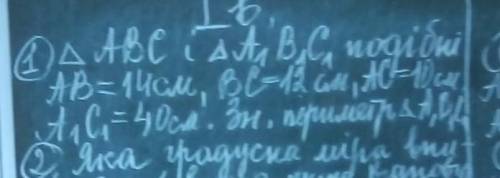 I в.
① △ ABC і △ A₁B₁C₁ подібні
AB=14см, BC=12см, AC=10см,
A₁C₁=40см. Зн. периметр △A₁B₁C₁
② Яка градусна міра вну-